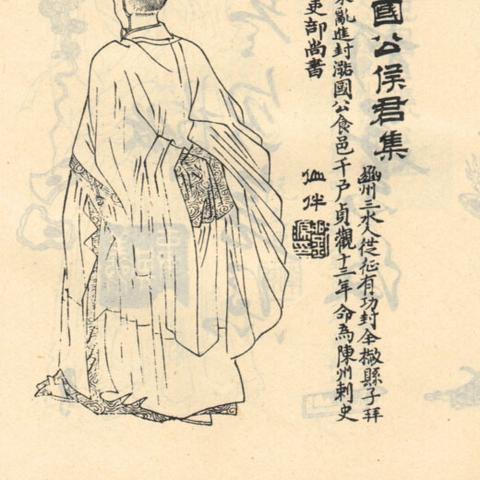 國公侯君集
豳州三水人從征有功封全椒縣子拜
亂進封潞國公食邑千戶貞觀十三年命為陳州刺史
吏部尚書
伴